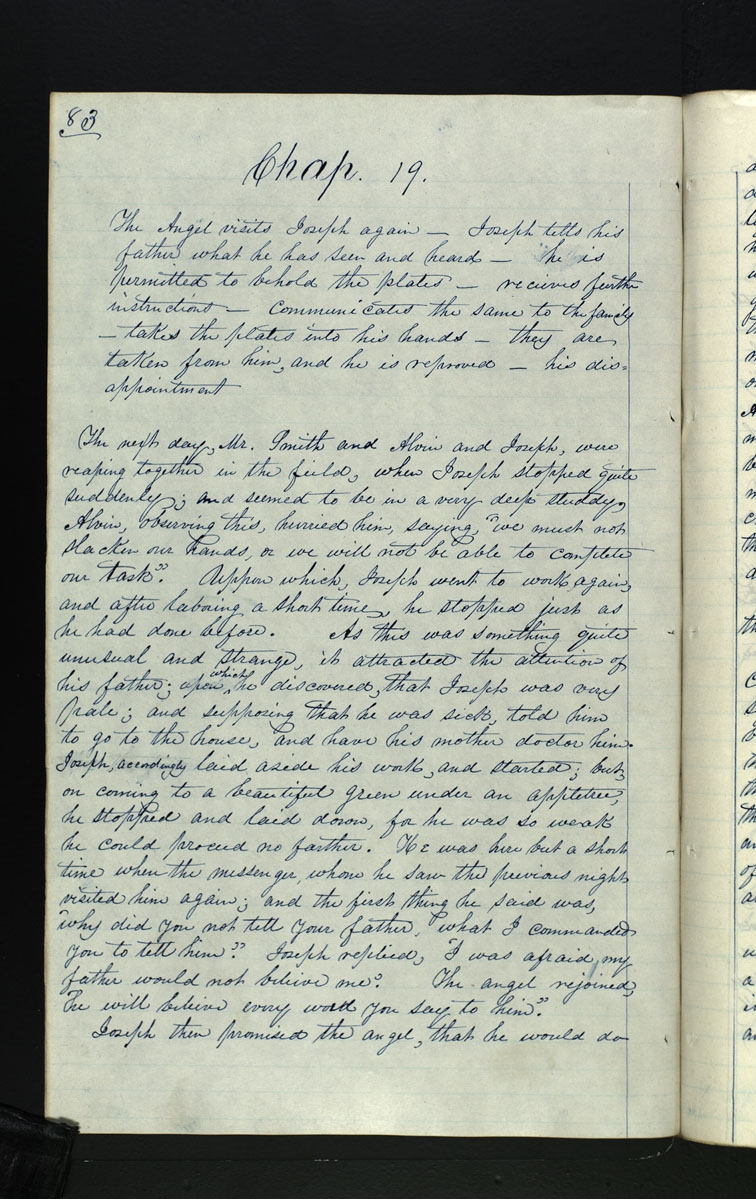 83
Chap. 19.
The Angel visits Joseph again — Joseph tells his
father what he has seen and heard — he is
permitted to behold the plates — recieves further
instructions — communicates the same to the family
— takes the plates into his hands — they are
taken from him, and he is reproved — his dis=
appointment
The next day, Mr. Smith and Alvin and Joseph, were
reaping together in the field, when Joseph stopped quite
suddenly; and seemed to be in a very deep studdy,
Alvin, observing this, hurried him, saying, "we must not
slacken our hands, or we will not be able to complete
our task". Uppon which, Joseph went to work again,
and after laboring a short time, he stopped just as
he had done before. As this was something quite
unusual and strange, it attracted the attention of
his father; upon which he discovered, that Joseph was very
pale; and supposing that he was sick, told him
to go to the house, and have his mother doctor him.
Joseph, accordingly laid aside his work, and started; but,
on coming to a beautiful green under an appletree,
he stopped and laid down, for he was so weak
he could proceed no farther. He was here but a short
time when the messenger, whom he saw the previous night,
visited him again; and the first thing he said was,
"why did you not tell your father, what I commanded
you to tell him?" Joseph replied, "I was afraid my
father would not believe me". The angel rejoined,
"he will believe every word you say to him".
Joseph then promised the angel, that he would do